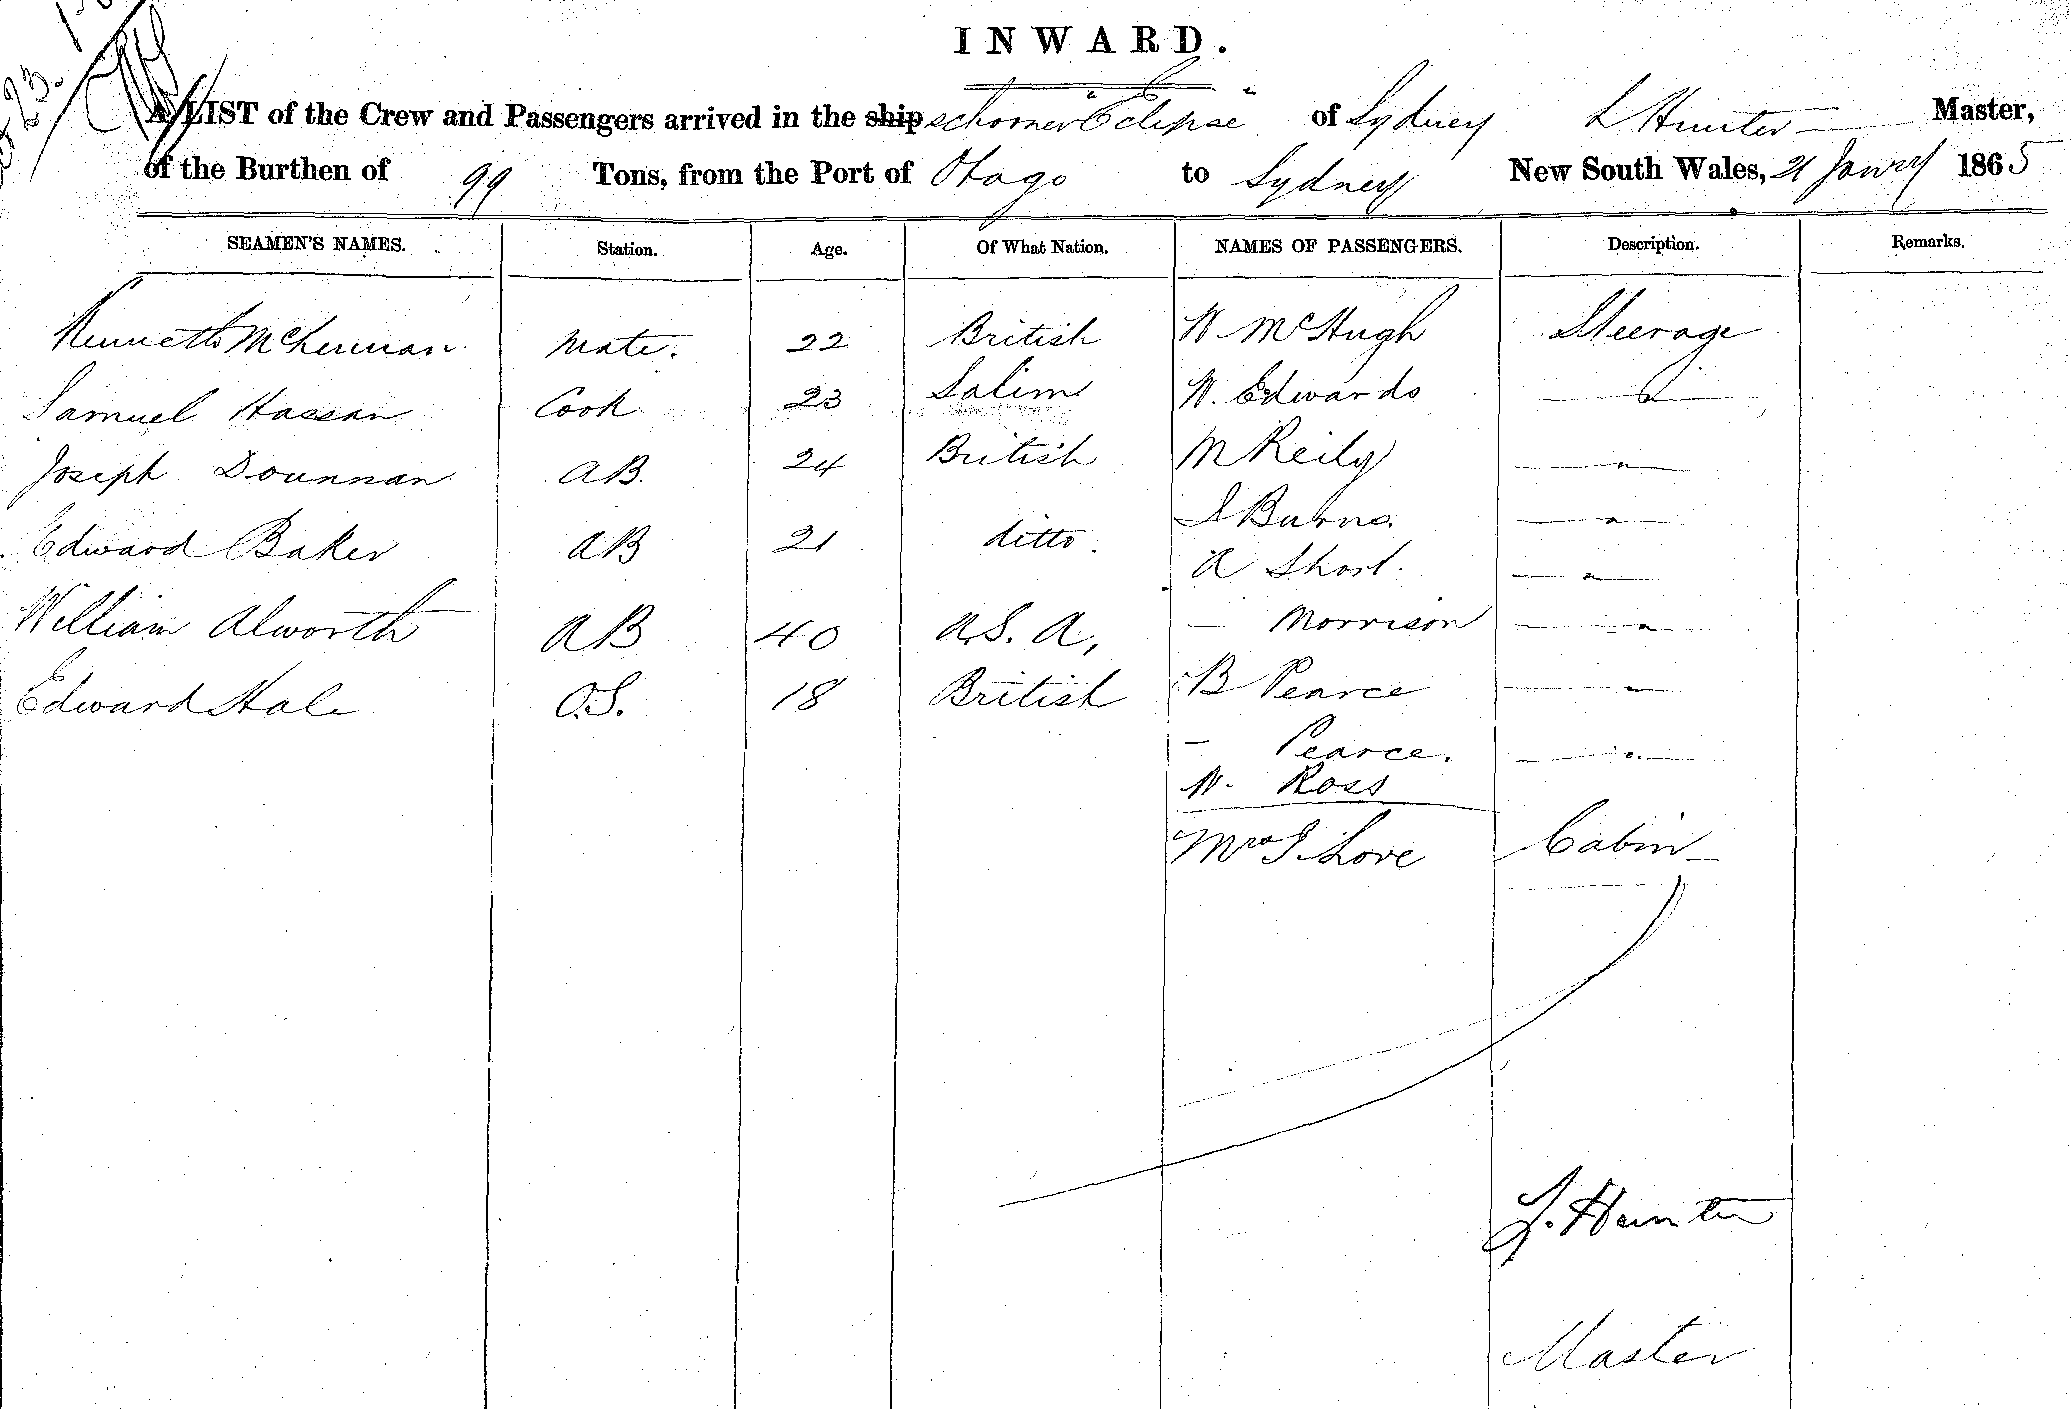 INWARD.
A LIST of the Crew and Passengers arrived in the ship schooner "Eclipse" of Sydney L Hunter Master,
of the Burthen of 99 Tons, from the Port of Otago to Sydney New South Wales, 21 Janry 1865
SEAMEN'S NAMES. Station. Age. Of What Nation. NAMES OF PASSENGERS. Description. Remarks.
Kenneth mate. 22 British W McHugh Steerage
Samuel Hassan Cook 23 Salim W. Edwards
Joseph Dounnan AB. 24 British M Reily "
Edward Baker AB 21 ditto. Burns. "
A Short. "
William Alworth AB 40 - Morrison "
Edward Hale O.S. 18 British B Pearce "
- Pearce. "
W. Ross
Mrs J. Love Cabin
L. Hunter
Master